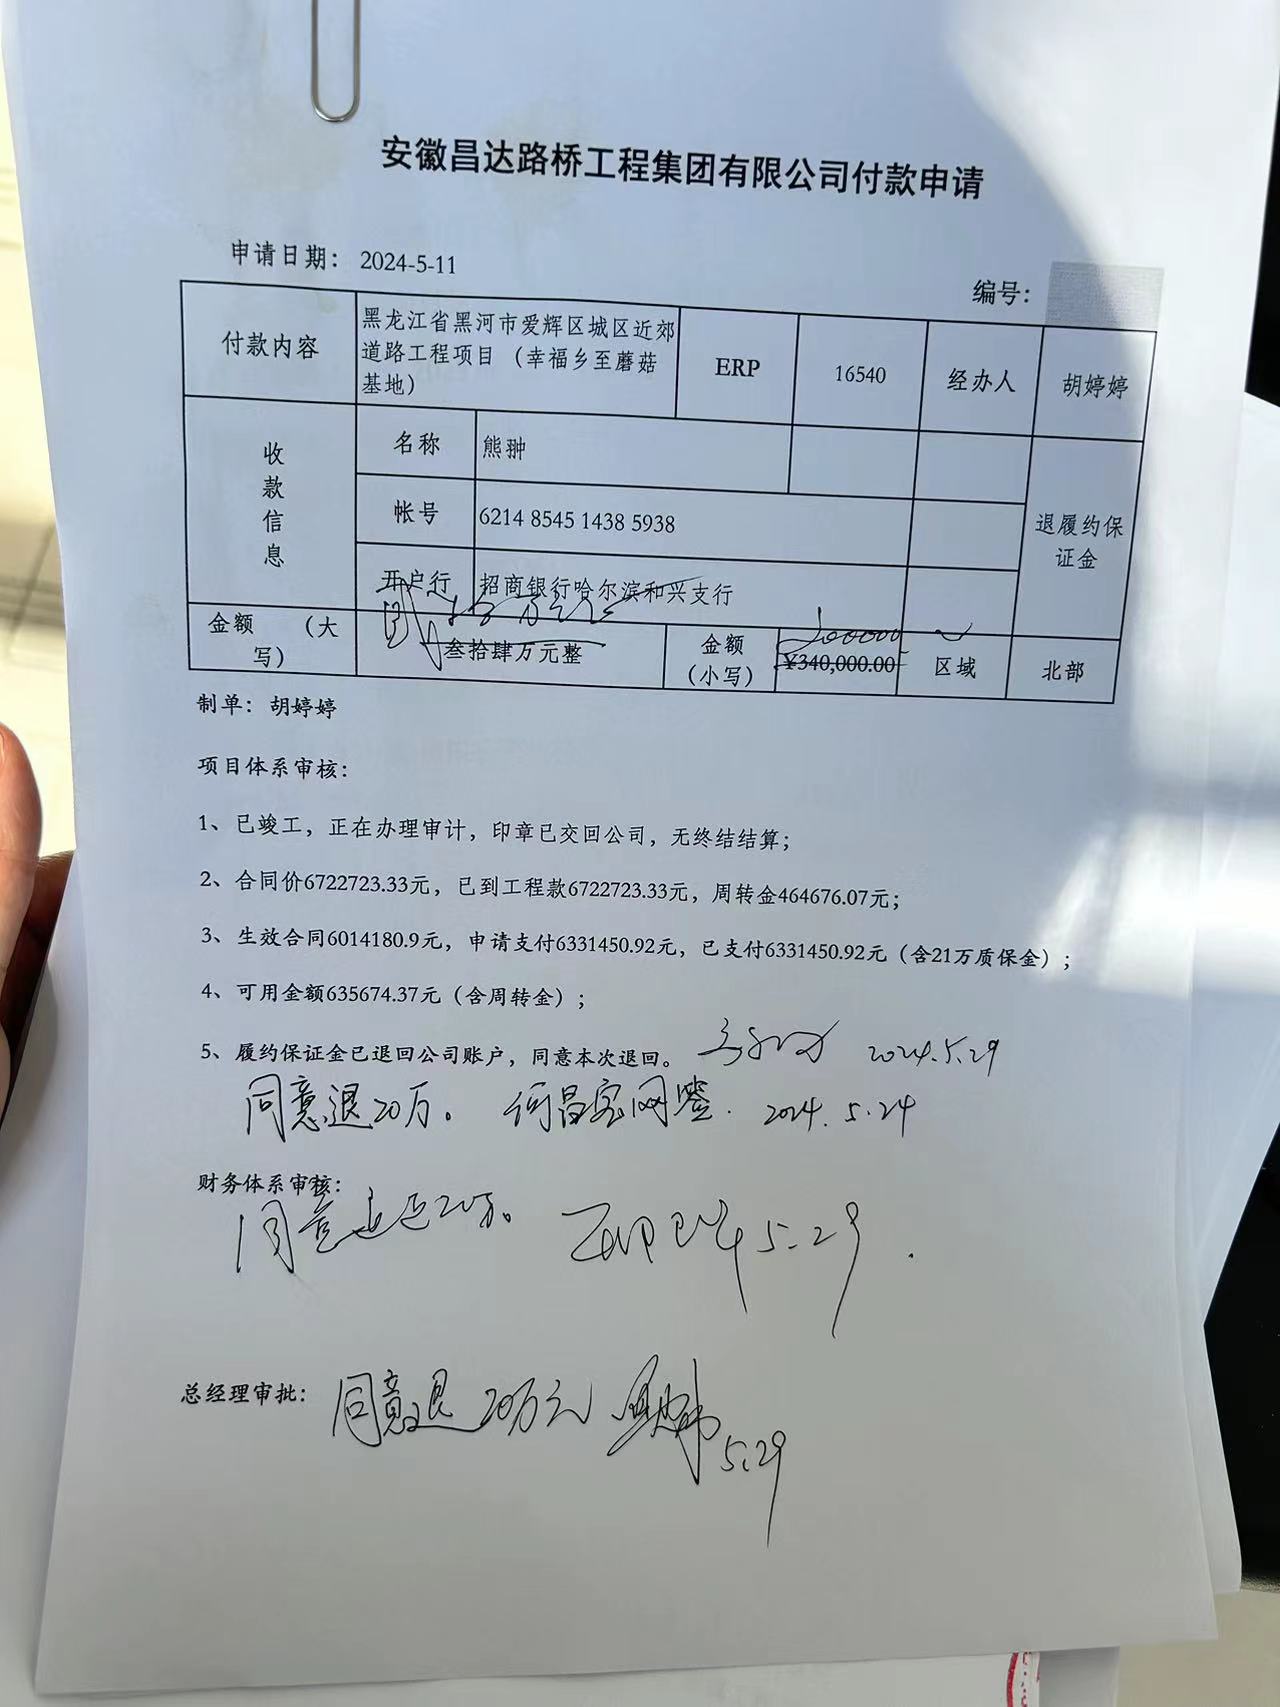 安徽昌达路桥工程集团有限公司付款申请
申请日期： 2024-5-11
编号：
付款内容
黑龙江省黑河市爱辉区城区近郊
道路工程项目（幸福乡至蘑菇
基地）
ERP
16540
经办人
胡婷婷
收款信息
名称
熊翀
帐号
6214 8545 1438 5938
开户行
招商银行哈尔滨和兴支行
退履约保
证金
金额 （大
写）
叁拾肆万元整
金额
（小写）
200000
¥340,000.00
区域
北部
制单：胡婷婷
项目体系审核：
1、已竣工，正在办理审计，印章已交回公司，无终结结算；
2、合同价6722723.33元，已到工程款6722723.33元，周转金464676.07元；
3、生效合同6014180.9元，申请支付6331450.92元，已支付6331450.92元（含21万质保金）；
4、可用金额635674.37元（含周转金）；
5、履约保证金已退回公司账户，同意本次退回。 2024.5.29
同意退20万。 何昌宝网签. 2024.5.24
财务体系审核：
同意退20万。 5.29
总经理审批：
同意退20万元 5.29